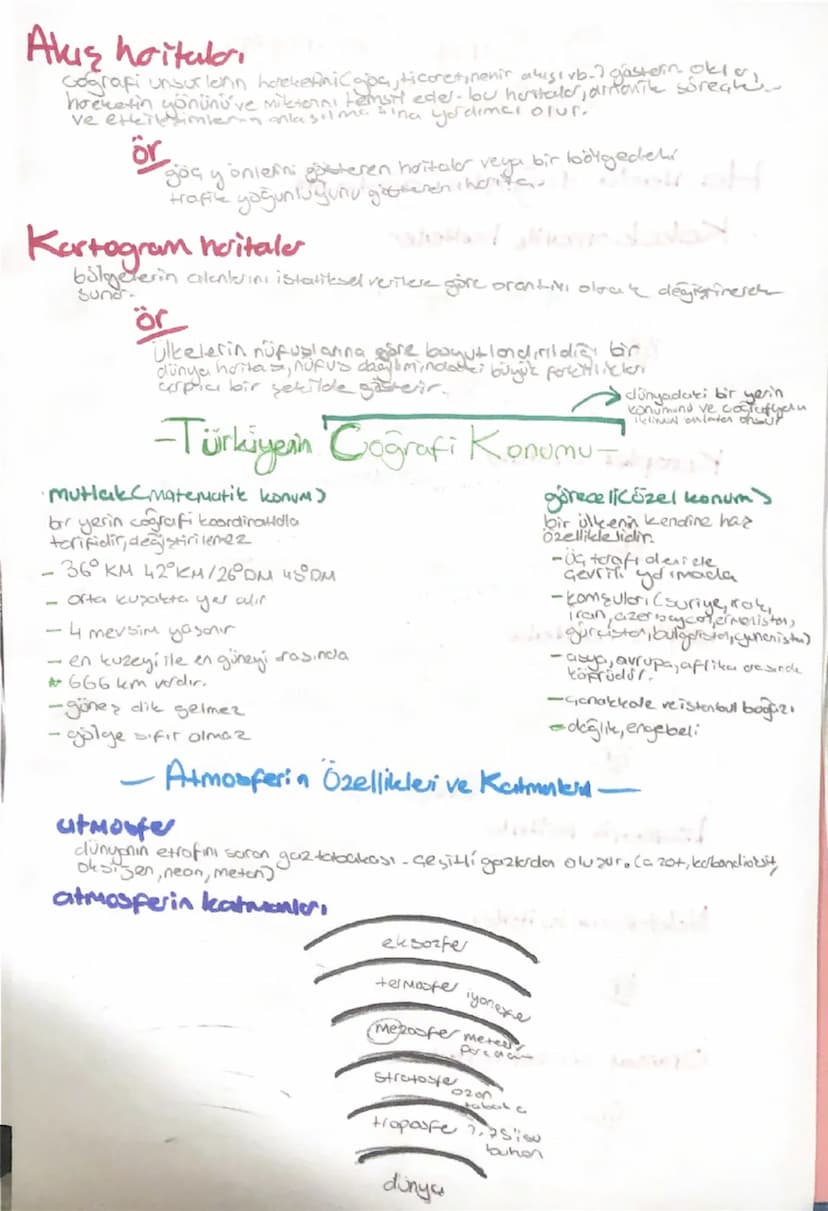 Akış haritaları
coğrafi unsurların hareketini (göç, ticaret, nehir akışı vb.) gösterir. oklar,
hareketin yönünü ve miktarını temsil eder. bu haritalar, dinamik süreçleri
ve etkileşimlerin anlaşılmasına yardımcı olur.
ör
göç yönlerini gösteren haritalar veya bir bölgedeki
trafik yoğunluğunu gösteren harita.
Kartogram haritalar
bölgelerin alanlarını istatiksel verilere göre orantılı olarak değiştirerek
sunar.
ör
ülkelerin nüfuslarına göre boyutlandırıldığı bir
dünya haritası, nüfus dağılımındaki büyük farklılıkları
çarpıcı bir şekilde gösterir.
dünyadaki bir yerin
konumunu ve coğrafyada
anlatan unsur
-Türkiyenin Coğrafi Konumu-
mutlak (matematik konum)
bir yerin coğrafi koordinatlarla
tarifidir, değiştirilemez
- 36° KM 42° KM / 26° DM 45° DM
- orta kuşakta yer alır
- 4 mevsim yaşanır
- en kuzeyi ile en güneyi arasında
666 km vardır.
- güneş dik gelmez
- gölge sıfır olmaz
göreceli (özel konum)
bir ülkenin kendine has
özellikleridir.
- üç tarafı denizle
çevrili yarımada
- komşuları (suriye, ırak,
iran, azerbaycan, ermenistan,
gürcistan, bulgaristan, yunanistan)
- asya, avrupa, afrika arasında
köprüdür.
- çanakkale ve istanbul boğazı
- dağlık, engebeli
- Atmosferin Özellikleri ve Katmanları -
atmosfer
dünyanın etrafını saran gaz tabakası. çeşitli gazlardan oluşur. (azot, karbondioksit,
oksijen, neon, metan)
atmosferin katmanları
eksozfer
termosfer iyonosfer
mezosfer meteor
stratosfer
ozon
tabaka
troposfer %75'i su
buharı
dünya